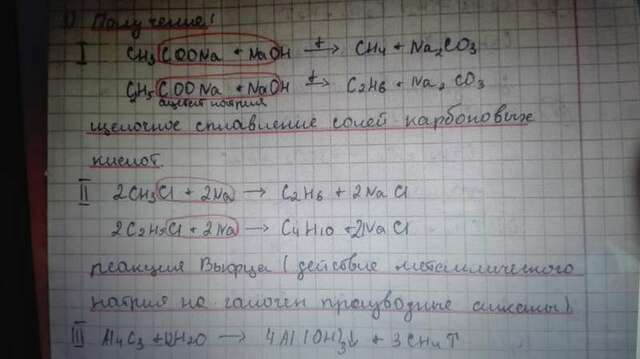 1) Получение!
I CH3COONa + NaOH t→ CH4 + Na2CO3
C2H5COONa + NaOH t→ C2H6 + Na2CO3
ацетат натрия
щелочное сплавление солей карбоновых
кислот.
II 2CH3Cl + 2Na → C2H6 + 2NaCl
2C2H5Cl + 2Na → C4H10 + 2NaCl
реакция Вюрца (действие металлического
натрия на галоген производные алканы)
III Al4C3 + 12H2O → 4Al(OH)3↓ + 3CH4↑